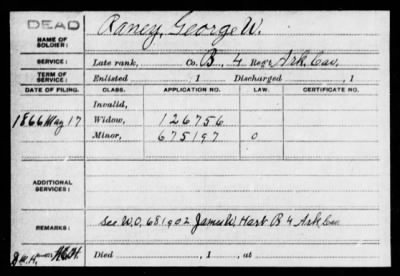 DEAD
NAME OF SOLDIER: Raney, George W.
SERVICE: Late rank, Co. B, 4 Reg't Ark. Cav.
TERM OF SERVICE: Enlisted , 1 Discharged , 1
DATE OF FILING. CLASS. APPLICATION NO. LAW. CERTIFICATE NO.
Invalid,
1866 May 17 Widow, 126756
Minor, 675197 0
ADDITIONAL SERVICES:
REMARKS: See W.O. 681902 James W. Hart B 4 Ark Cav
Died , 1 , at